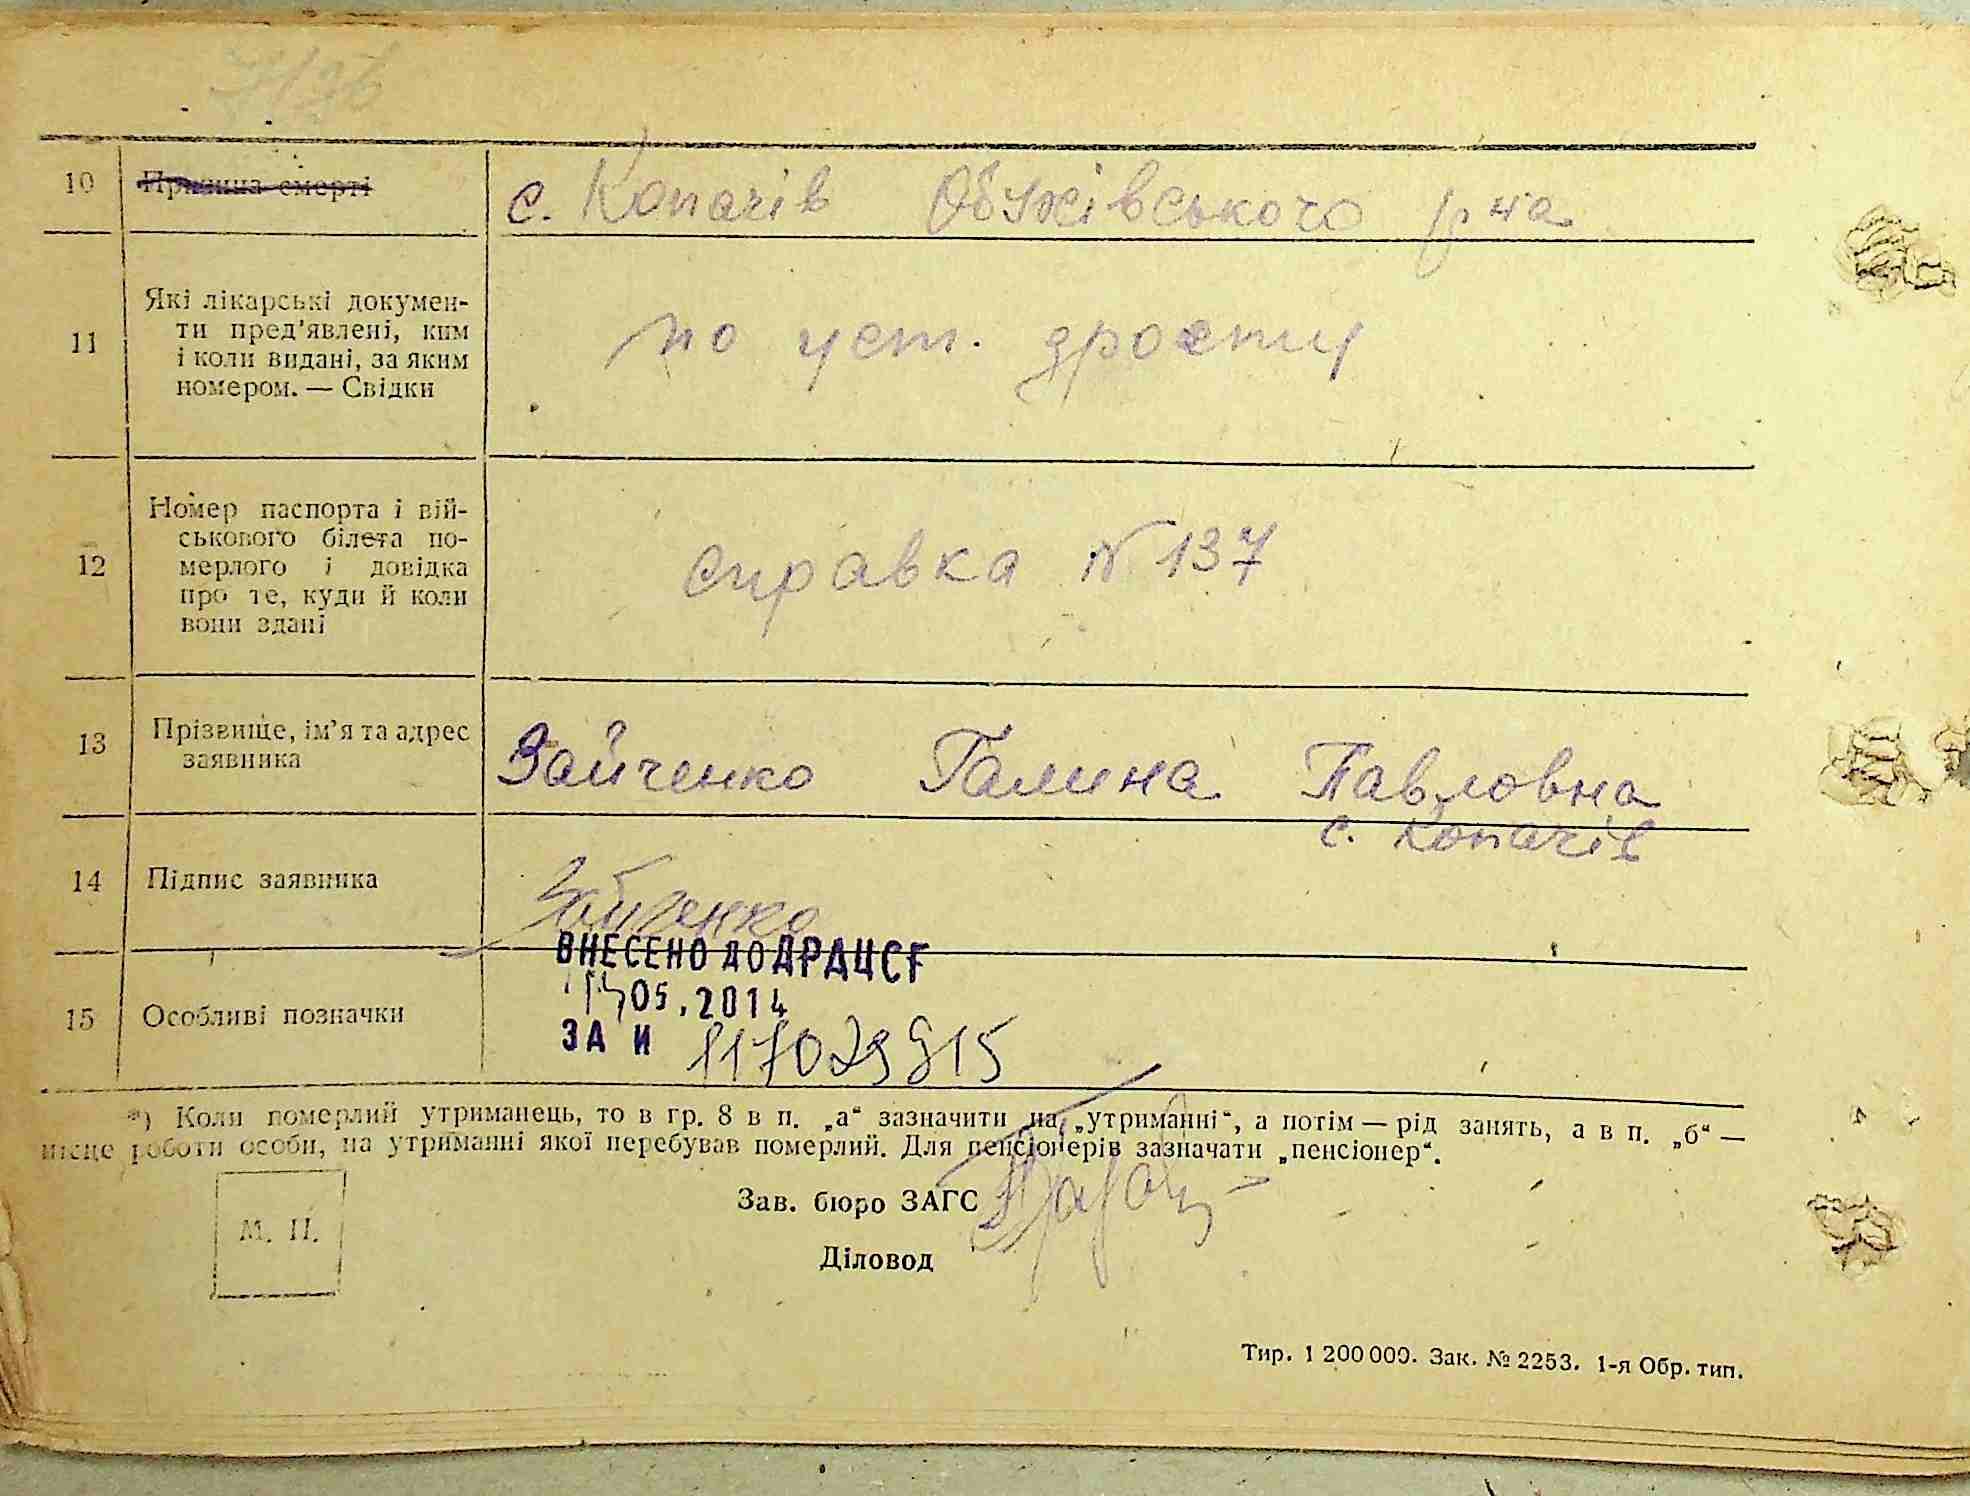 10 Причина смерті с. Копачів Обухівського р-на
11 Які лікарські докумен-
ти пред'явлені, ким
і коли видані, за яким
номером. — Свідки
по уст.
12 Номер паспорта і вій-
ськового білета по-
мерлого і довідка
про те, куди й коли
вони здані
справка N 137
13 Прізвище, ім'я та адрес
заявника
Зайченко Галина Павловна
с. Копачів
14 Підпис заявника
Зайченко
ВНЕСЕНО ДО ДРАЦСГ
05.2014
15 Особливі позначки
ЗА И
*) Коли померлий утриманець, то в гр. 8 в п. „а“ зазначити на „утриманні“, а потім — рід занять, а в п. „б“ —
місце роботи особи, на утриманні якої перебував померлий. Для пенсіонерів зазначати „пенсіонер“.
Зав. бюро ЗАГС
М. П.
Діловод
Тир. 1 200 000. Зак. № 2253. 1-я Обр. тип.